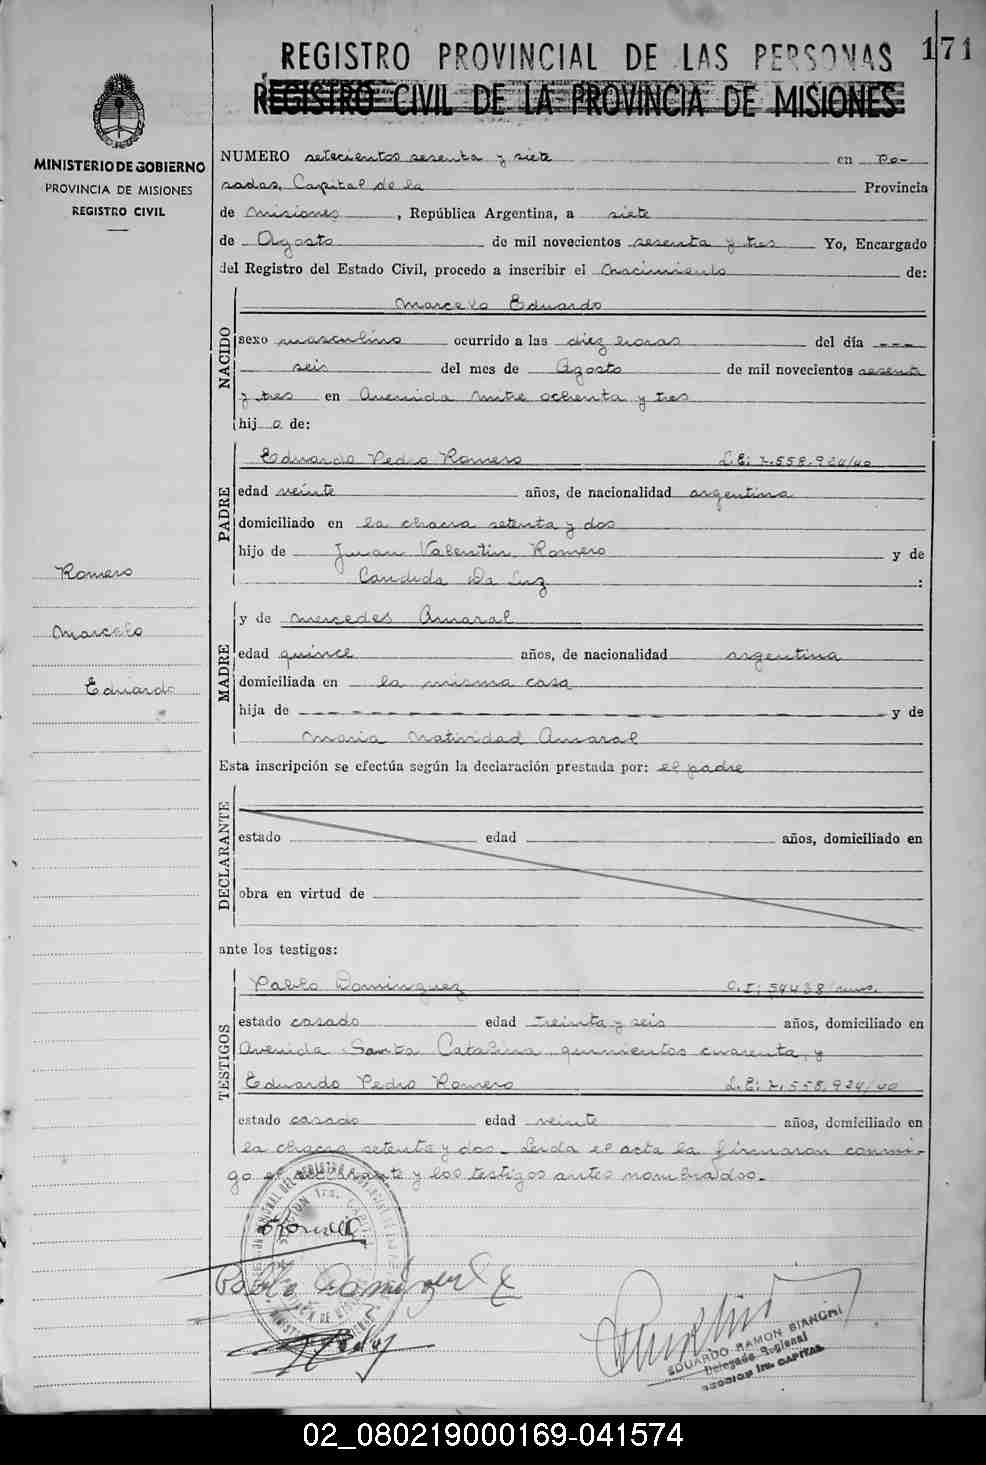 REGISTRO PROVINCIAL DE LAS PERSONAS
171
REGISTRO CIVIL DE LA PROVINCIA DE MISIONES
MINISTERIO DE GOBIERNO
PROVINCIA DE MISIONES
REGISTRO CIVIL
NUMERO setecientos sesenta y siete en Po-
sadas, Capital de la Provincia
de Misiones, República Argentina, a siete
de Agosto de mil novecientos sesenta y tres Yo, Encargado
del Registro del Estado Civil, procedo a inscribir el nacimiento de:
Marcelo Eduardo
NACIDO
sexo masculino ocurrido a las diez horas del día ---
seis del mes de Agosto de mil novecientos sesenta
y tres en Avenida Mitre ochenta y tres
hij o de:
Eduardo Pedro Romero L.E: 7.558.924/40
PADRE
edad veinte años, de nacionalidad argentina
domiciliado en la chacra setenta y dos
hijo de Juan Valentin Romero y de
Candida Da Luz :
Romero
Marcelo
Eduardo
y de Mercedes Amaral
MADRE
edad quince años, de nacionalidad argentina
domiciliada en la misma casa
hija de - - - - - - - - - - - - - - y de
Maria Natividad Amaral
Esta inscripción se efectúa según la declaración prestada por: el padre
DECLARANTE
estado edad años, domiciliado en
obra en virtud de
ante los testigos:
TESTIGOS
Pablo Dominguez C.I: 54438/mns.
estado casado edad treinta y seis años, domiciliado en
Avenida Santa Catalina quinientos cuarenta, y
Eduardo Pedro Romero L.E: 7.558.924/40
estado casado edad veinte años, domiciliado en
la chacra setenta y dos_ Leida el acta la firmaron conmi-
go el declarante y los testigos antes nombrados._
Pablo Dominguez
EDUARDO RAMON BIANCHI
Delegado Regional
SECCION 1ra. CAPITAL
02_080219000169-041574